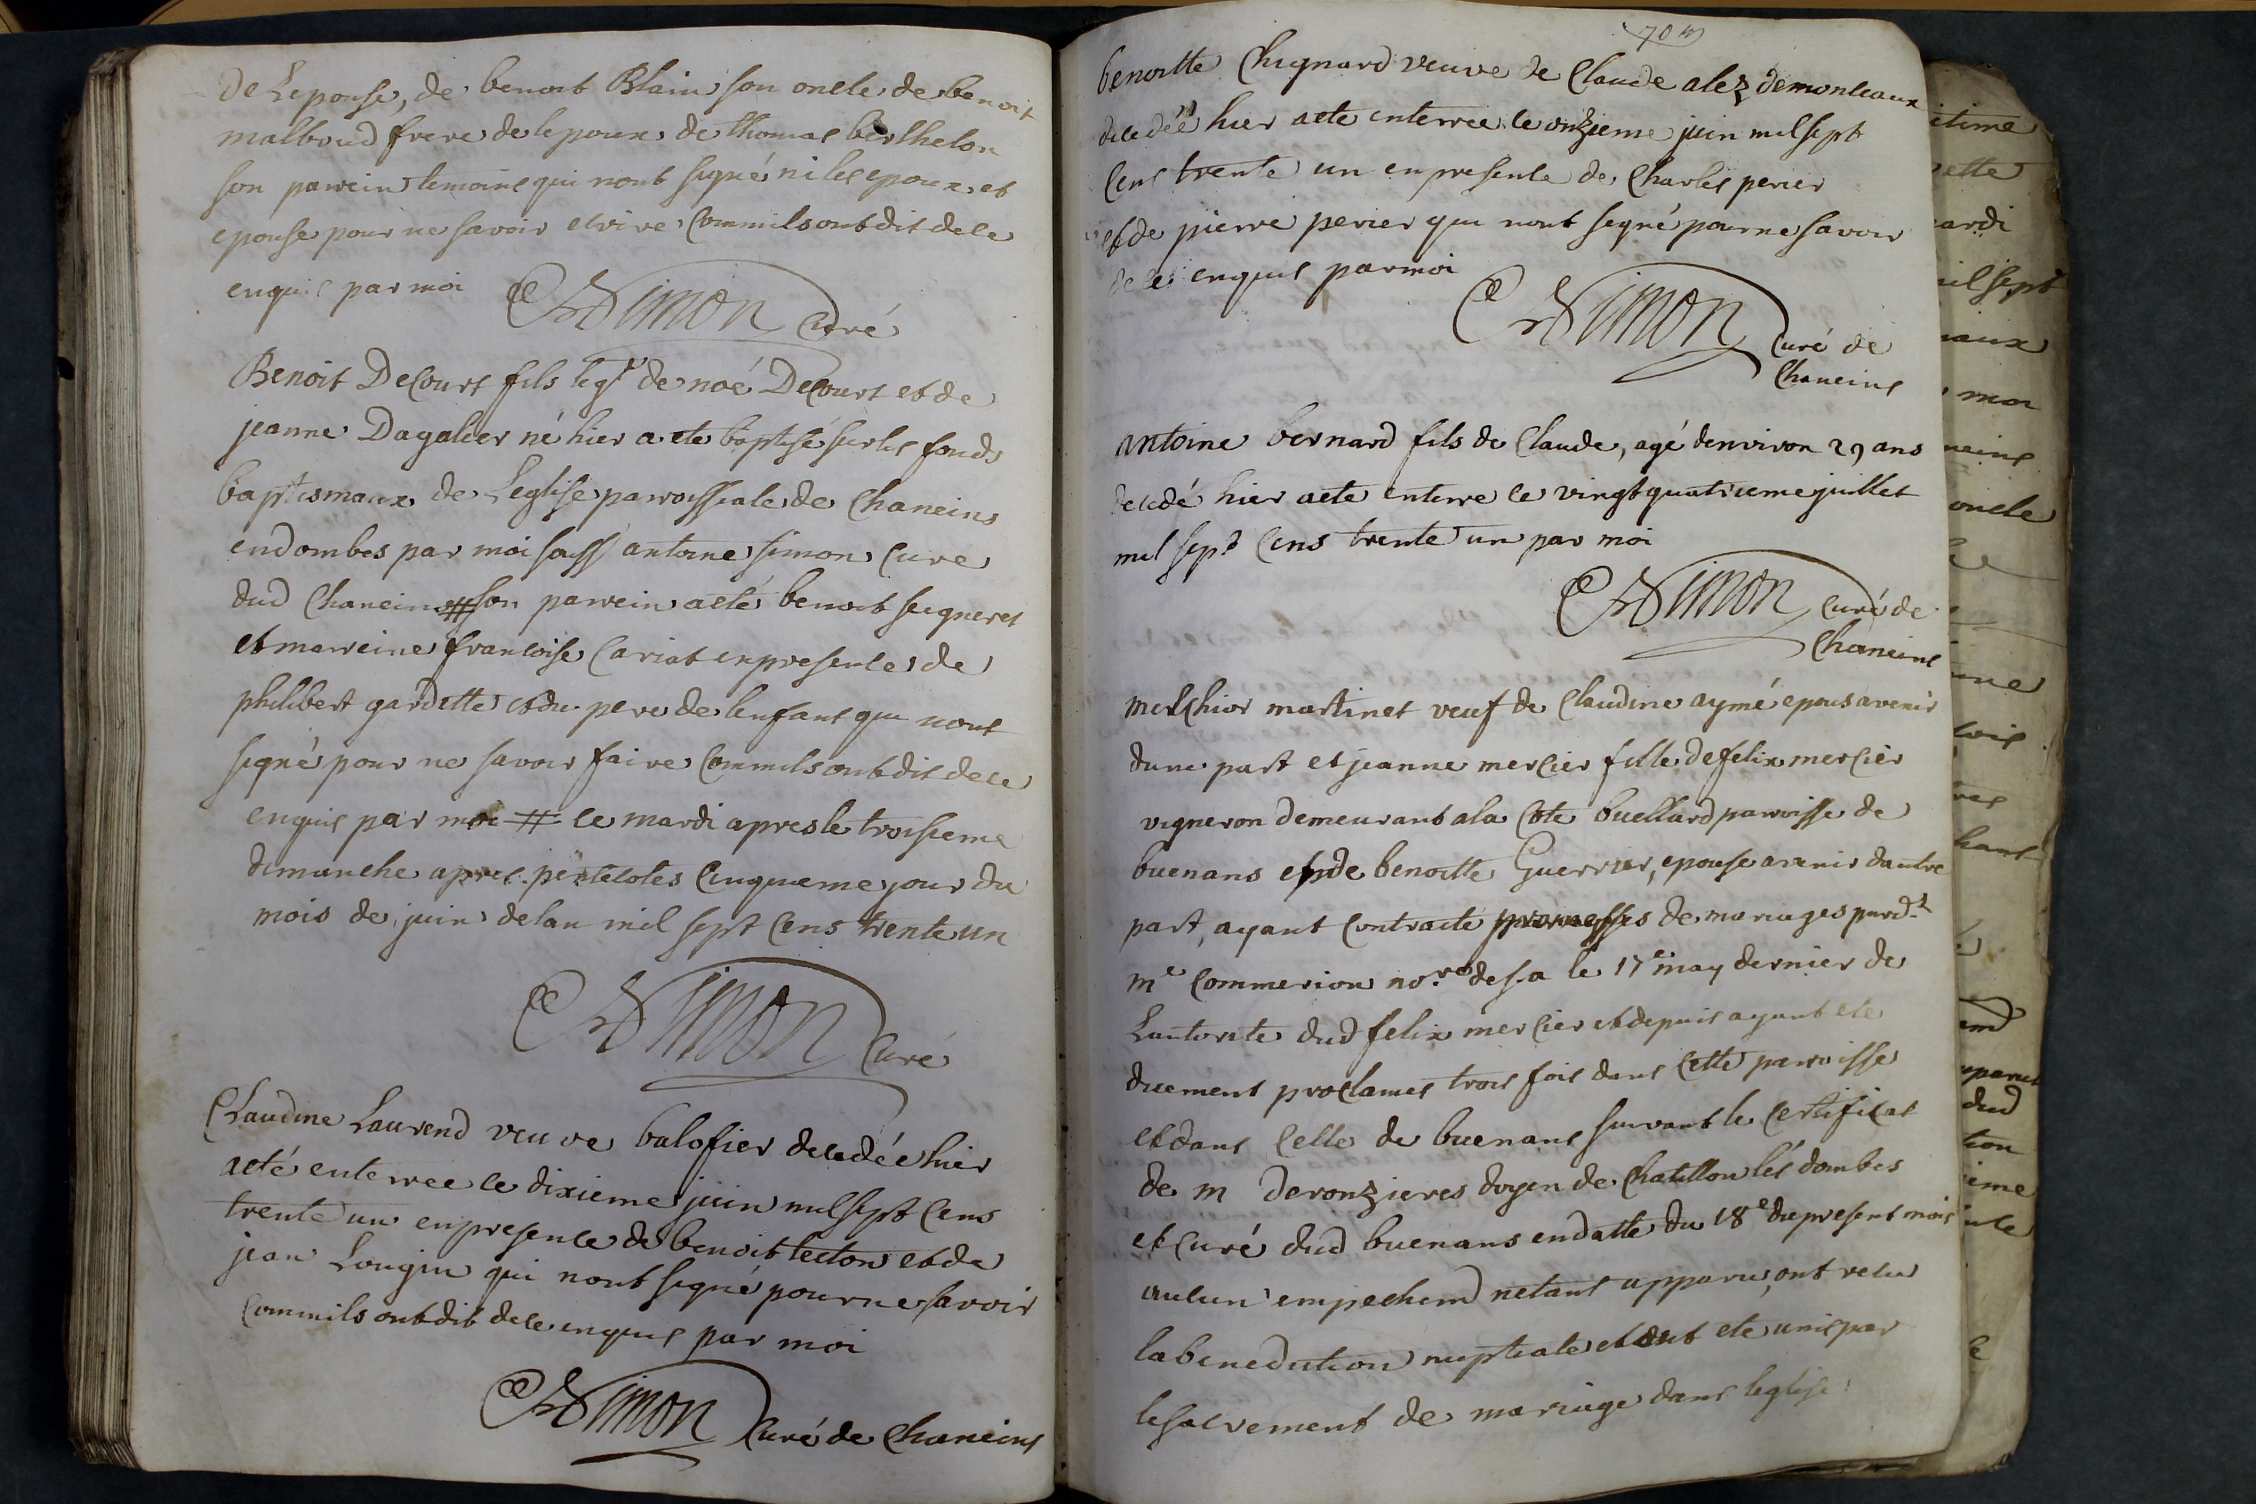 de Lepouse, de benoit Blain son oncle de benoit
malbrud frere de lepoux de thomas berthelon
son parrein temoins qui nont signé ni les epoux et
epouse pour ne savoir ecrire comm ils ont dit de ce
enquis par moi Simon Curé
Benoit Decourt fils legt de noé Decourt et de
jeanne Dagalier né hier a ete baptisé sur les fonds
baptismaux de Leglise parroissiale de Chaneins
en dombes par moi souss antoine simon Curé
dud Chaneins # son parrein a eté benoit seigneret
et marreine francoise Cariat en presence de
philibert gardette et du pere de lenfant qui nont
signé pour ne savoir faire comm ils ont dit de ce
enquis par moi # le mardi apres le troisieme
dimanche apres pentecotes cinquieme jour du
mois de juin de lan mil sept cens trente un
Simon Curé
Claudine Laurend veuve balofier decedée hier
a eté enterree le dixieme juin mil sept cens
trente un en presence de benoit lecton et de
jean Longin qui nont signé pour ne savoir
comm ils ont dit de ce enquis par moi
Simon Curé de Chaneins
70
benoitte Chignard veuve de Claude alez de montceaux
decedéé hier a ete enterree le onzieme juin mil sept
cens trente un en presence de Charles perier
et de pierre perier qui nont signé pour ne savoir
de ce enquis par moi
Simon Curé de
Chaneins
antoine bernard fils de Claude, agé denviron 29 ans
decedé hier a ete enterre le vingt quatrieme juillet
mil sept cens trente un par moi
Simon Curé de
Chaneins
melchior martinet veuf de Claudine aymé epoux avenir
dune part et jeanne mercier fille de felix mercier
vigneron demeurant a la Côte buellard parroisse de
buenans et de benoitte Guerrier, epouse avenir dautre
part, ayant contracté promesses de mariages pardt
me Commerion nore de s.a le 17e may dernier de
Lautorité dud felix mercier et depuis ayant eté
duement proclames trois fois dans cette parroisse
et dans celle de buenans suivant le certificat
de m deronzieres doyen de Chatillon lés dombes
et Curé dud buenans en datte du 18e du present mois
aucun empechemd netant apparu, ont recu
la benediction nuptiale et ont eté unis par
le sacrement de mariage dans leglise